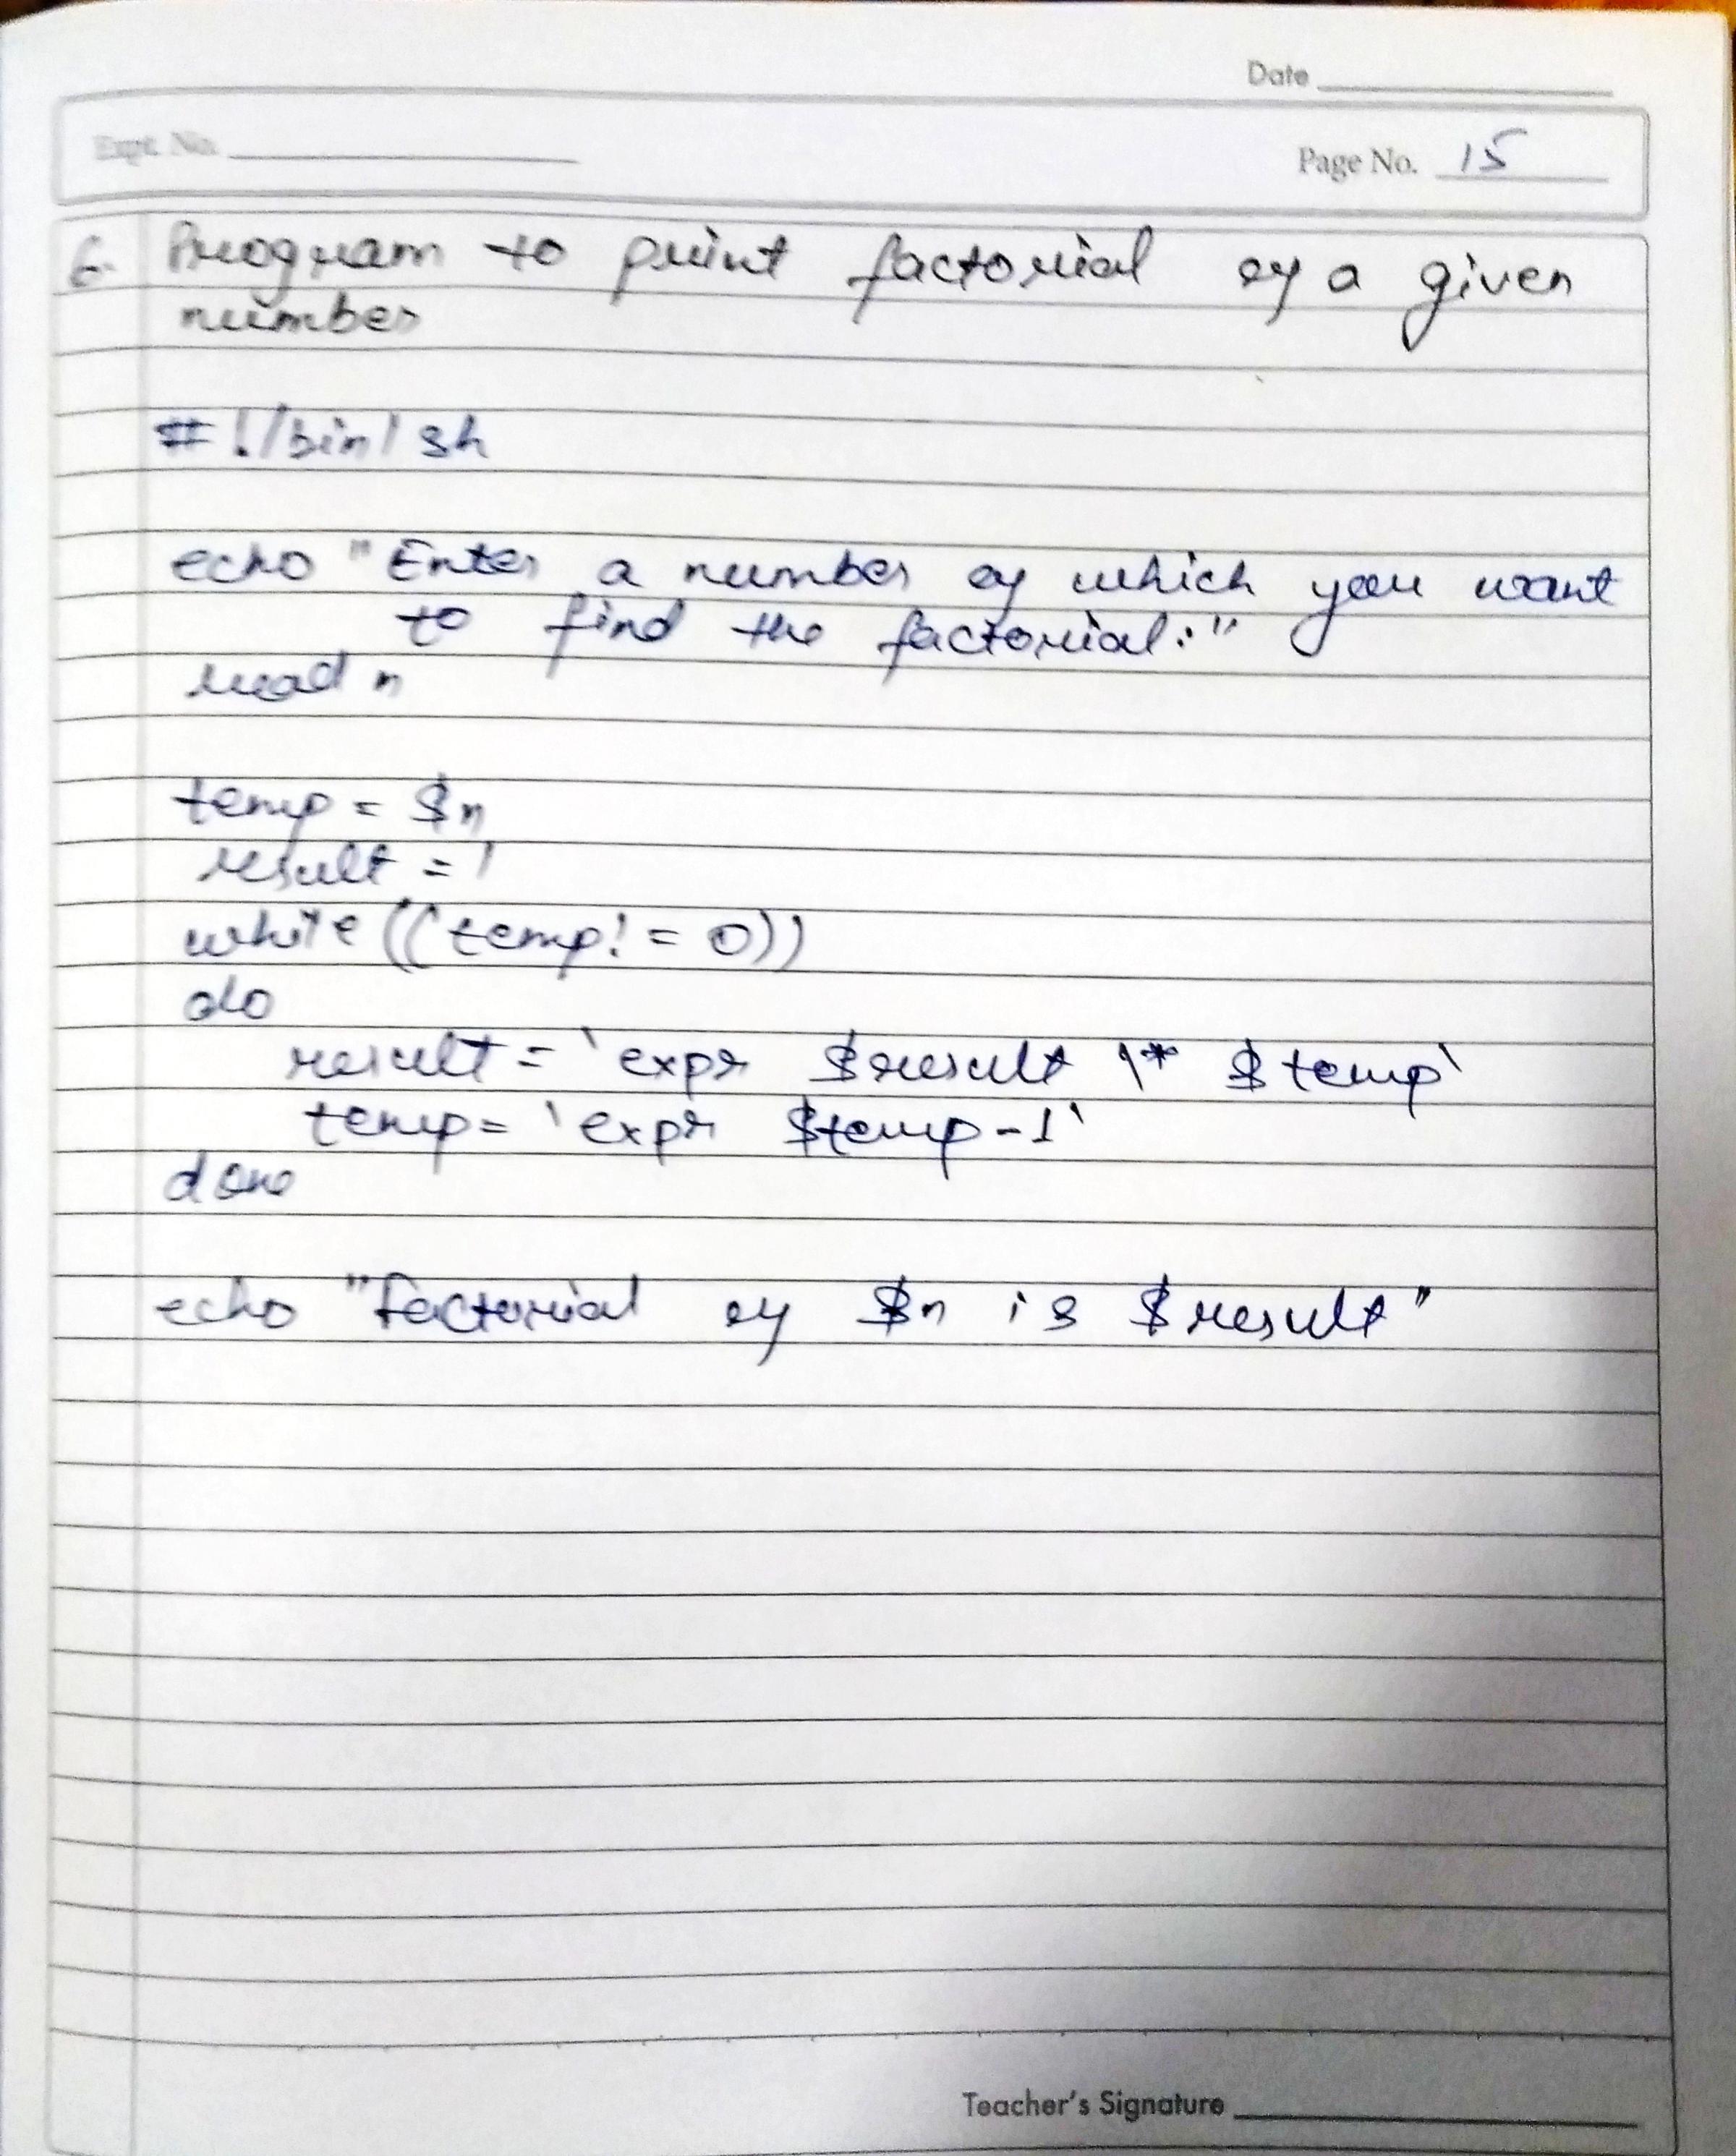 Date
Expt. No.
Page No. 15
6. Program to print factorial of a given
number
#!/bin/sh
echo "Enter a number of which you want
to find the factorial:"
read n
temp = $n
result = 1
while ((temp! = 0))
do
result = `expr $result \* $temp`
temp= `expr $temp-1`
done
echo "Factorial of $n is $result"
Teacher's Signature